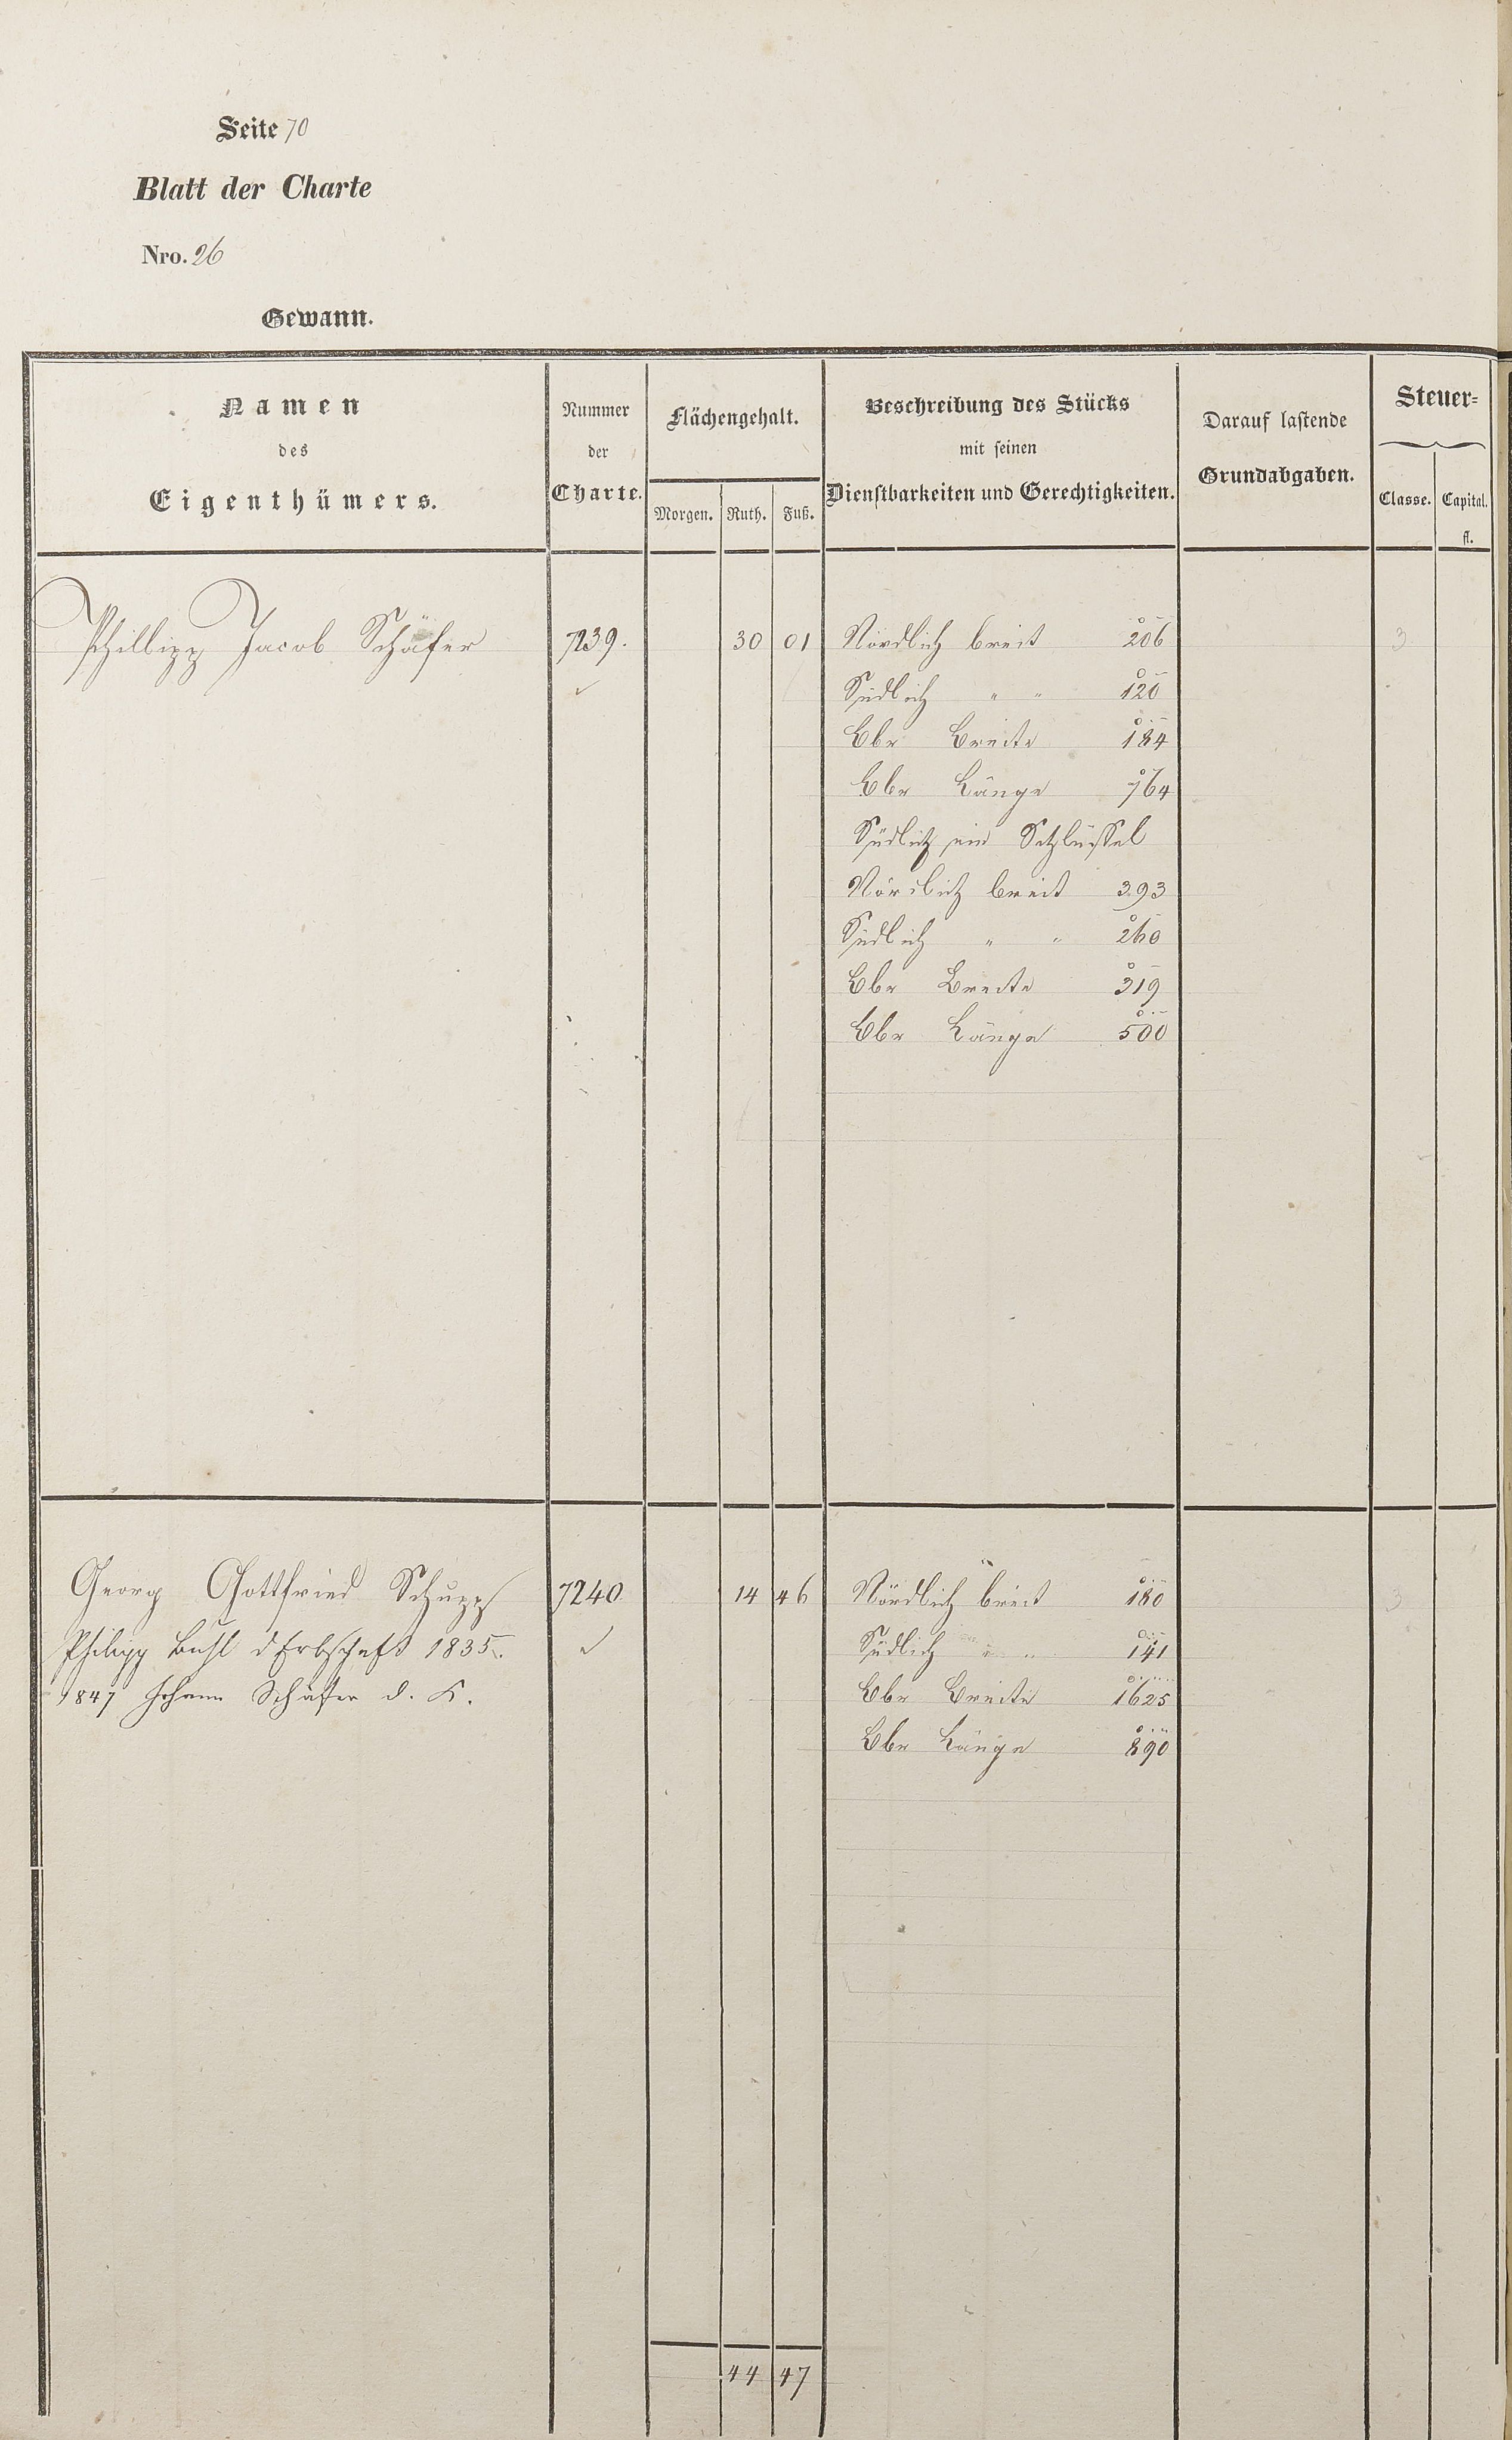 Seite 70
Blatt der Charte
Nro. 26
Gewann.
Namen
des
Eigenthümers.
Nummer
der
Charte.
Flächengehalt.
Morgen. Ruth. Fuß.
Beschreibung des Stücks
mit seinen
Dienstbarkeiten und Gerechtigkeiten.
Darauf lastende
Grundabgaben.
Steuer=
Classe. Capital.
fl.
Phillipp Jacob Schäfer 7239. 30 01 Nördlich breit 206 3
Südlich " " 120
Ebr Breite 184
Ebr Länge 764
Südlich ein Schlüssel
Nördlich breit 393
Südlich " " 260
Ebr Breite 319
Ebr Länge 500
Georg Gottfried Schupp 7240 14 46 Nördlich breit 180 3
Philipp Buhl d Erbschaft 1835. Südlich " " 141
1847 Johann Schäfer d. K. Ebr Breite 1625
Ebr Länge 890
44 47